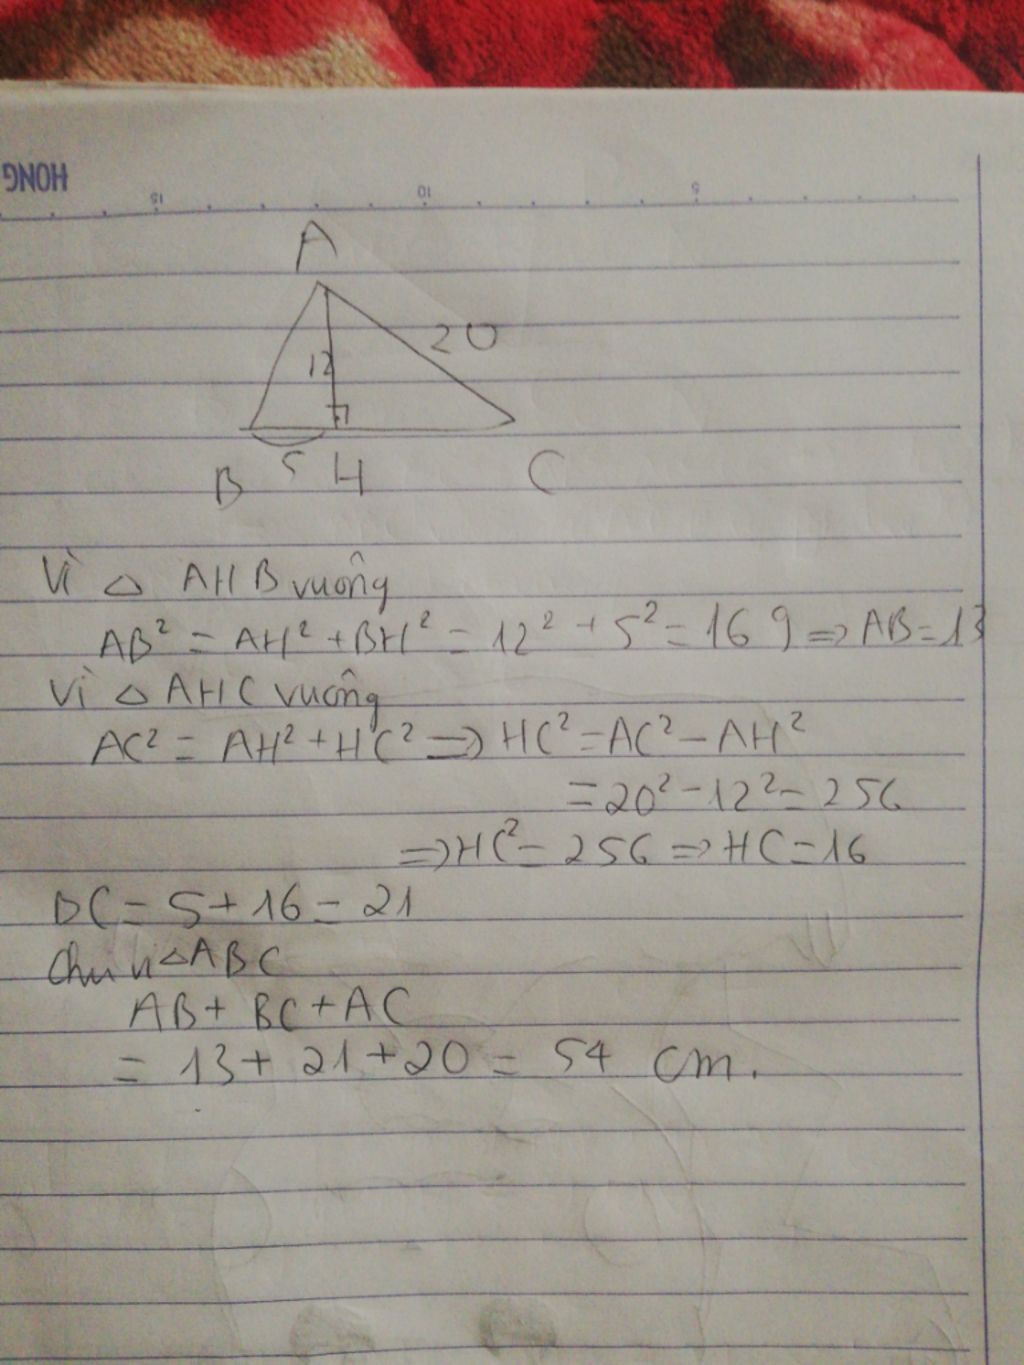 HONG
15 10 5
A
20
12
B 5 H C
Vì △ AHB vuông
AB² = AH² + BH² = 12² + 5² = 169 => AB = 13
Vì △ AHC vuông
AC² = AH² + HC² => HC² = AC² - AH²
= 20² - 12² = 256
=> HC² = 256 => HC = 16
BC = 5 + 16 = 21
Chu vi △ABC
AB + BC + AC
= 13 + 21 + 20 = 54 cm.